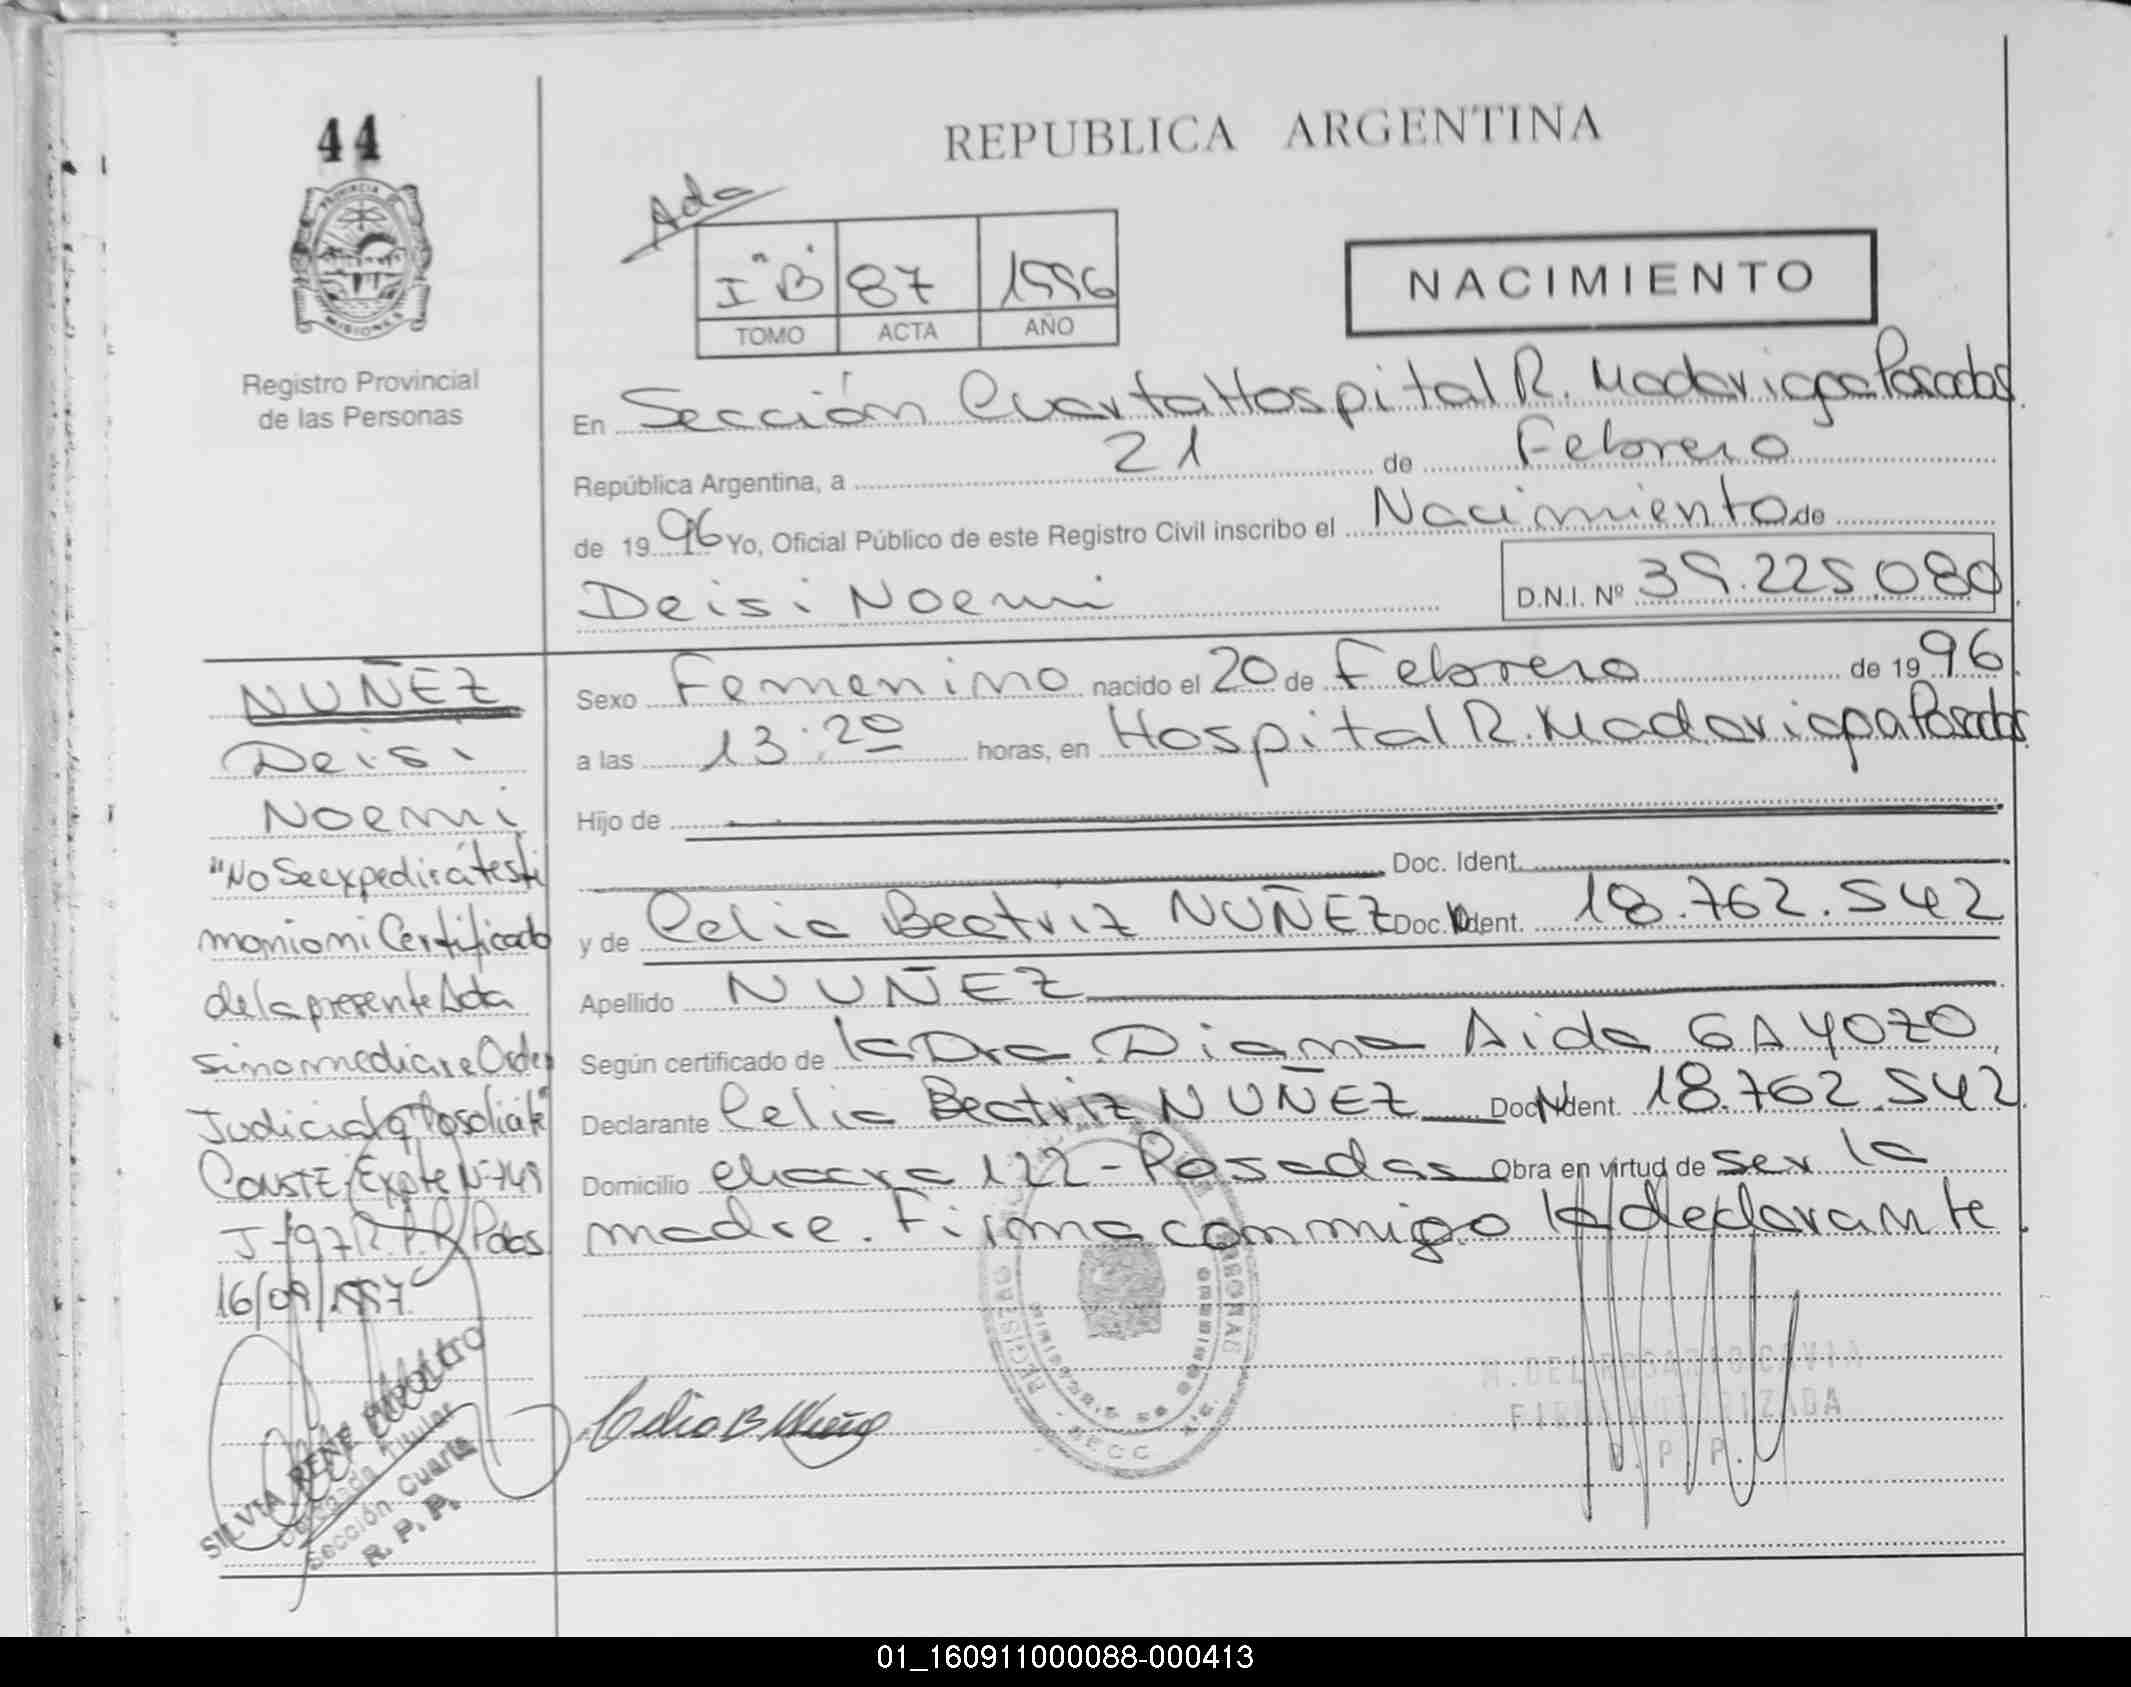 44
PROVINCIA DE
MISIONES
Registro Provincial
de las Personas
REPUBLICA ARGENTINA
Ada
I "B" 87 1996
TOMO ACTA AÑO
NACIMIENTO
En Sección Cuarta Hospital R. Madariaga Posadas
República Argentina, a 21 de Febrero
de 1996 Yo, Oficial Público de este Registro Civil inscribo el Nacimiento de
Deisi Noemi D.N.I. Nº 39.225.080
Sexo Femenino nacido el 20 de Febrero de 1996
a las 13:20 horas, en Hospital R. Madariaga Posadas
Hijo de
Doc. Ident.
y de Celia Beatriz NUÑEZ Doc. Ident. 18.762.542
Apellido NUÑEZ
Según certificado de la Dra Diana Aida GAYOZO
Declarante Celia Beatriz NUÑEZ Doc. Ident. 18.762.542
Domicilio chacra 122 - Posadas Obra en virtud de ser la
madre. Firma conmigo la declarante.
NUÑEZ
Deisi
Noemi
"No se expedirá testi
monio ni Certificado
de la presente Acta
sino mediare Orden
Judicial q' lo solicite"
CONSTE, Expte Nº 749
J-97 R.P.P. Pdas
16/09/1997
SILVIA RENE
Delegada Titular
Sección Cuarta
R. P. P.
Celia B Nuñez
M. DEL ROSARIO CAVIA
FIRMA AUTORIZADA
R. P. P.
01_160911000088-000413